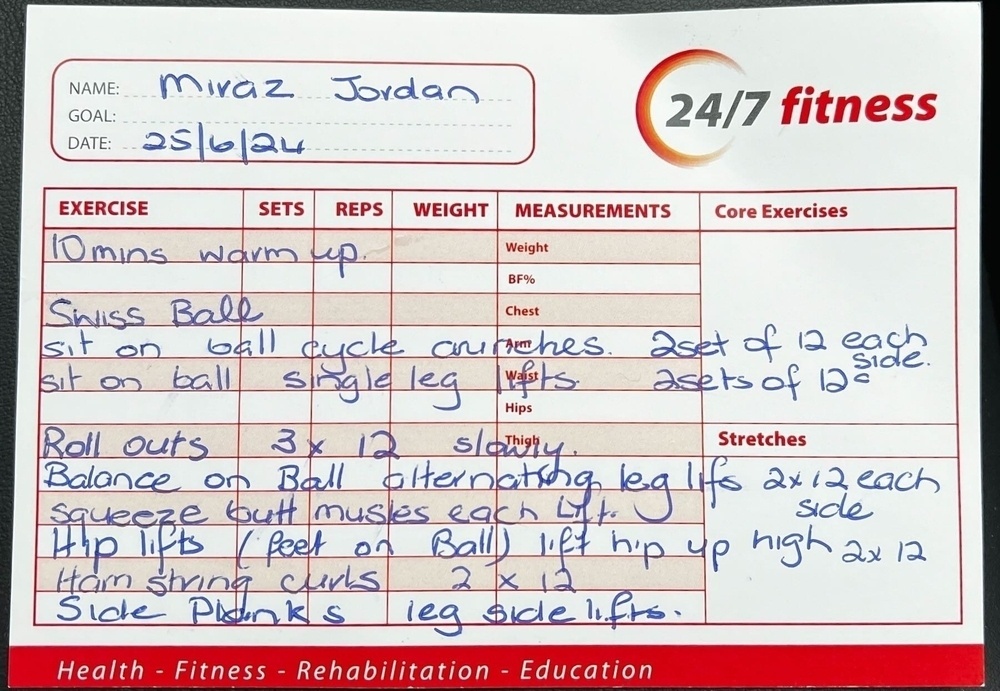 24/7 fitness
NAME: Miraz Jordan
GOAL:
DATE: 25/6/24
EXERCISE SETS REPS WEIGHT MEASUREMENTS Core Exercises
10 mins warm up. Weight
BF%
Swiss Ball Chest
sit on ball cycle crunches. Arm 2set of 12 each side.
sit on ball single leg lifts. Waist 2sets of 12
Hips
Roll outs 3 x 12 slowly. Thigh Stretches
Balance on Ball alternating leg lifs 2x12 each side
squeeze butt musles each Lift.
Hip lifts (feet on Ball) lift hip up high 2x 12
Ham string curls 2 x 12
Side Planks leg side lifts.
Health - Fitness - Rehabilitation - Education